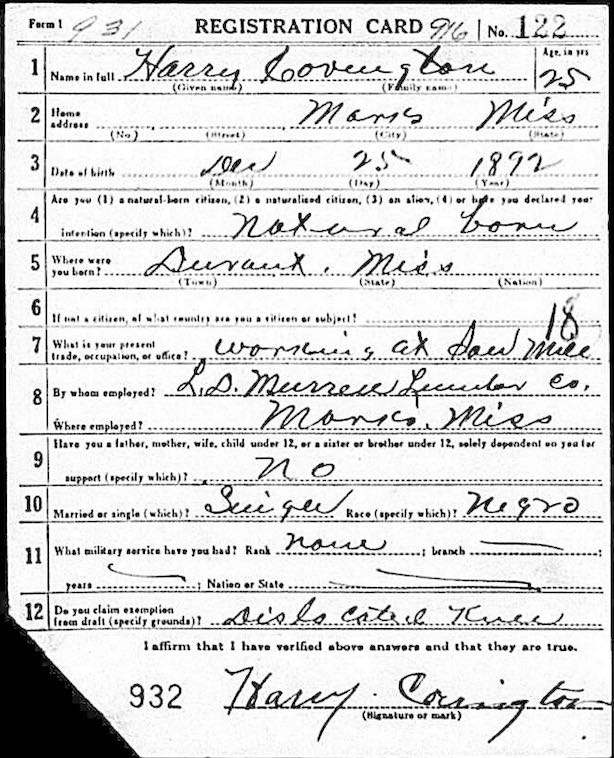 Form 1 931 REGISTRATION CARD 916 No. 122
1 Name in full Harry Covington Age, in yrs 25
(Given name) (Family name)
2 Home address Marks Miss
(No.) (Street) (City) (State)
3 Date of birth Dec 25 1892
(Month) (Day) (Year)
4 Are you (1) a natural-born citizen, (2) a naturalized citizen, (3) an alien, (4) or have you declared your
intention (specify which)? natural born
5 Where were you born? Durant, Miss
(Town) (State) (Nation)
6 If not a citizen, of what country are you a citizen or subject?
18
7 What is your present trade, occupation, or office? working at Saw Mill
8 By whom employed? L. D. Murrell Lumber Co.
Where employed? Marks, Miss
9 Have you a father, mother, wife, child under 12, or a sister or brother under 12, solely dependent on you for
support (specify which)? No
10 Married or single (which)? Single Race (specify which)? Negro
11 What military service have you had? Rank none ; branch
years ; Nation or State
12 Do you claim exemption from draft (specify grounds)? Dislocated Knee
I affirm that I have verified above answers and that they are true.
932 Harry Covington
(Signature or mark)